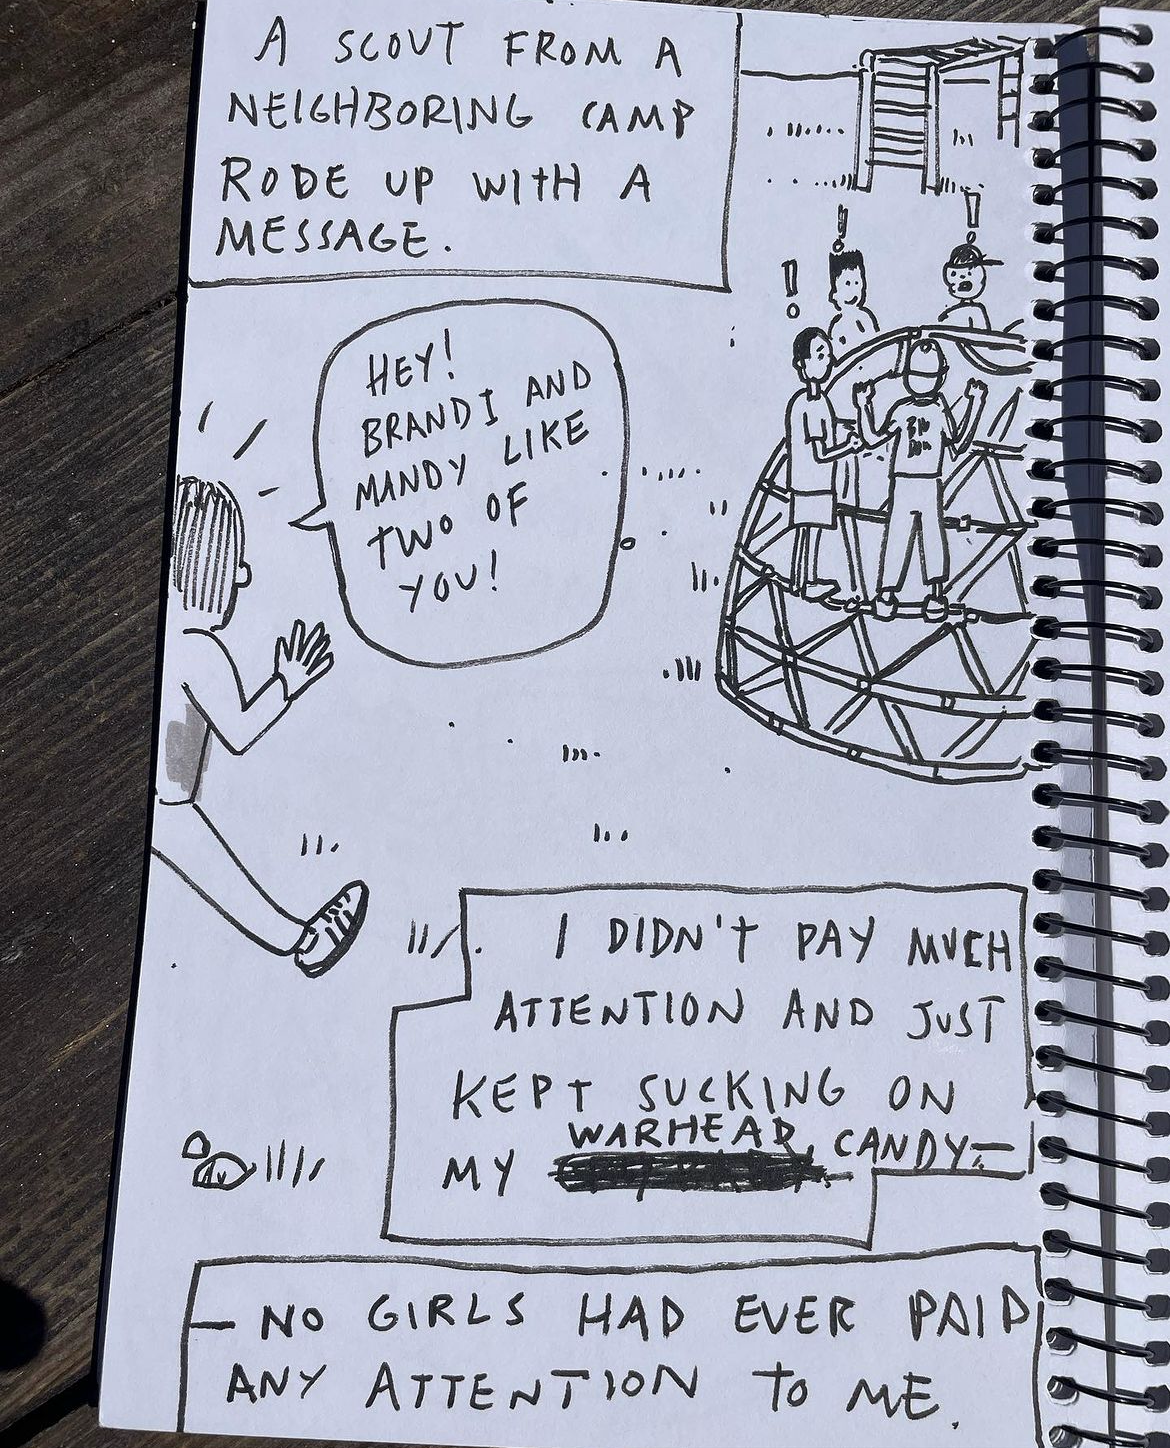 A SCOUT FROM A
NEIGHBORING CAMP
RODE UP WITH A
MESSAGE.
!
!
!
HEY!
BRANDI AND
MANDY LIKE
TWO OF
YOU!
I DIDN'T PAY MUCH
ATTENTION AND JUST
KEPT SUCKING ON
MY WARHEAD CANDY—
— NO GIRLS HAD EVER PAID
ANY ATTENTION TO ME.